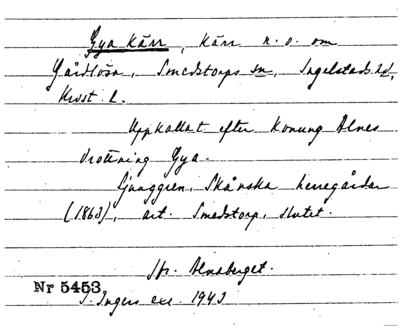 Gya Kärr, Kärr n. o. om
Gårdlösa, Smedstorps sn, Ingelstads hd,
Krist. l.
Uppkallat efter Konung Alnes
drottning Gya.
Ljunggren, Skånska herregårdar
(1863), art. Smedstorp, slutet.
Jfr. Alnaberget.
Nr 5453
I. Ingers exc. 1943